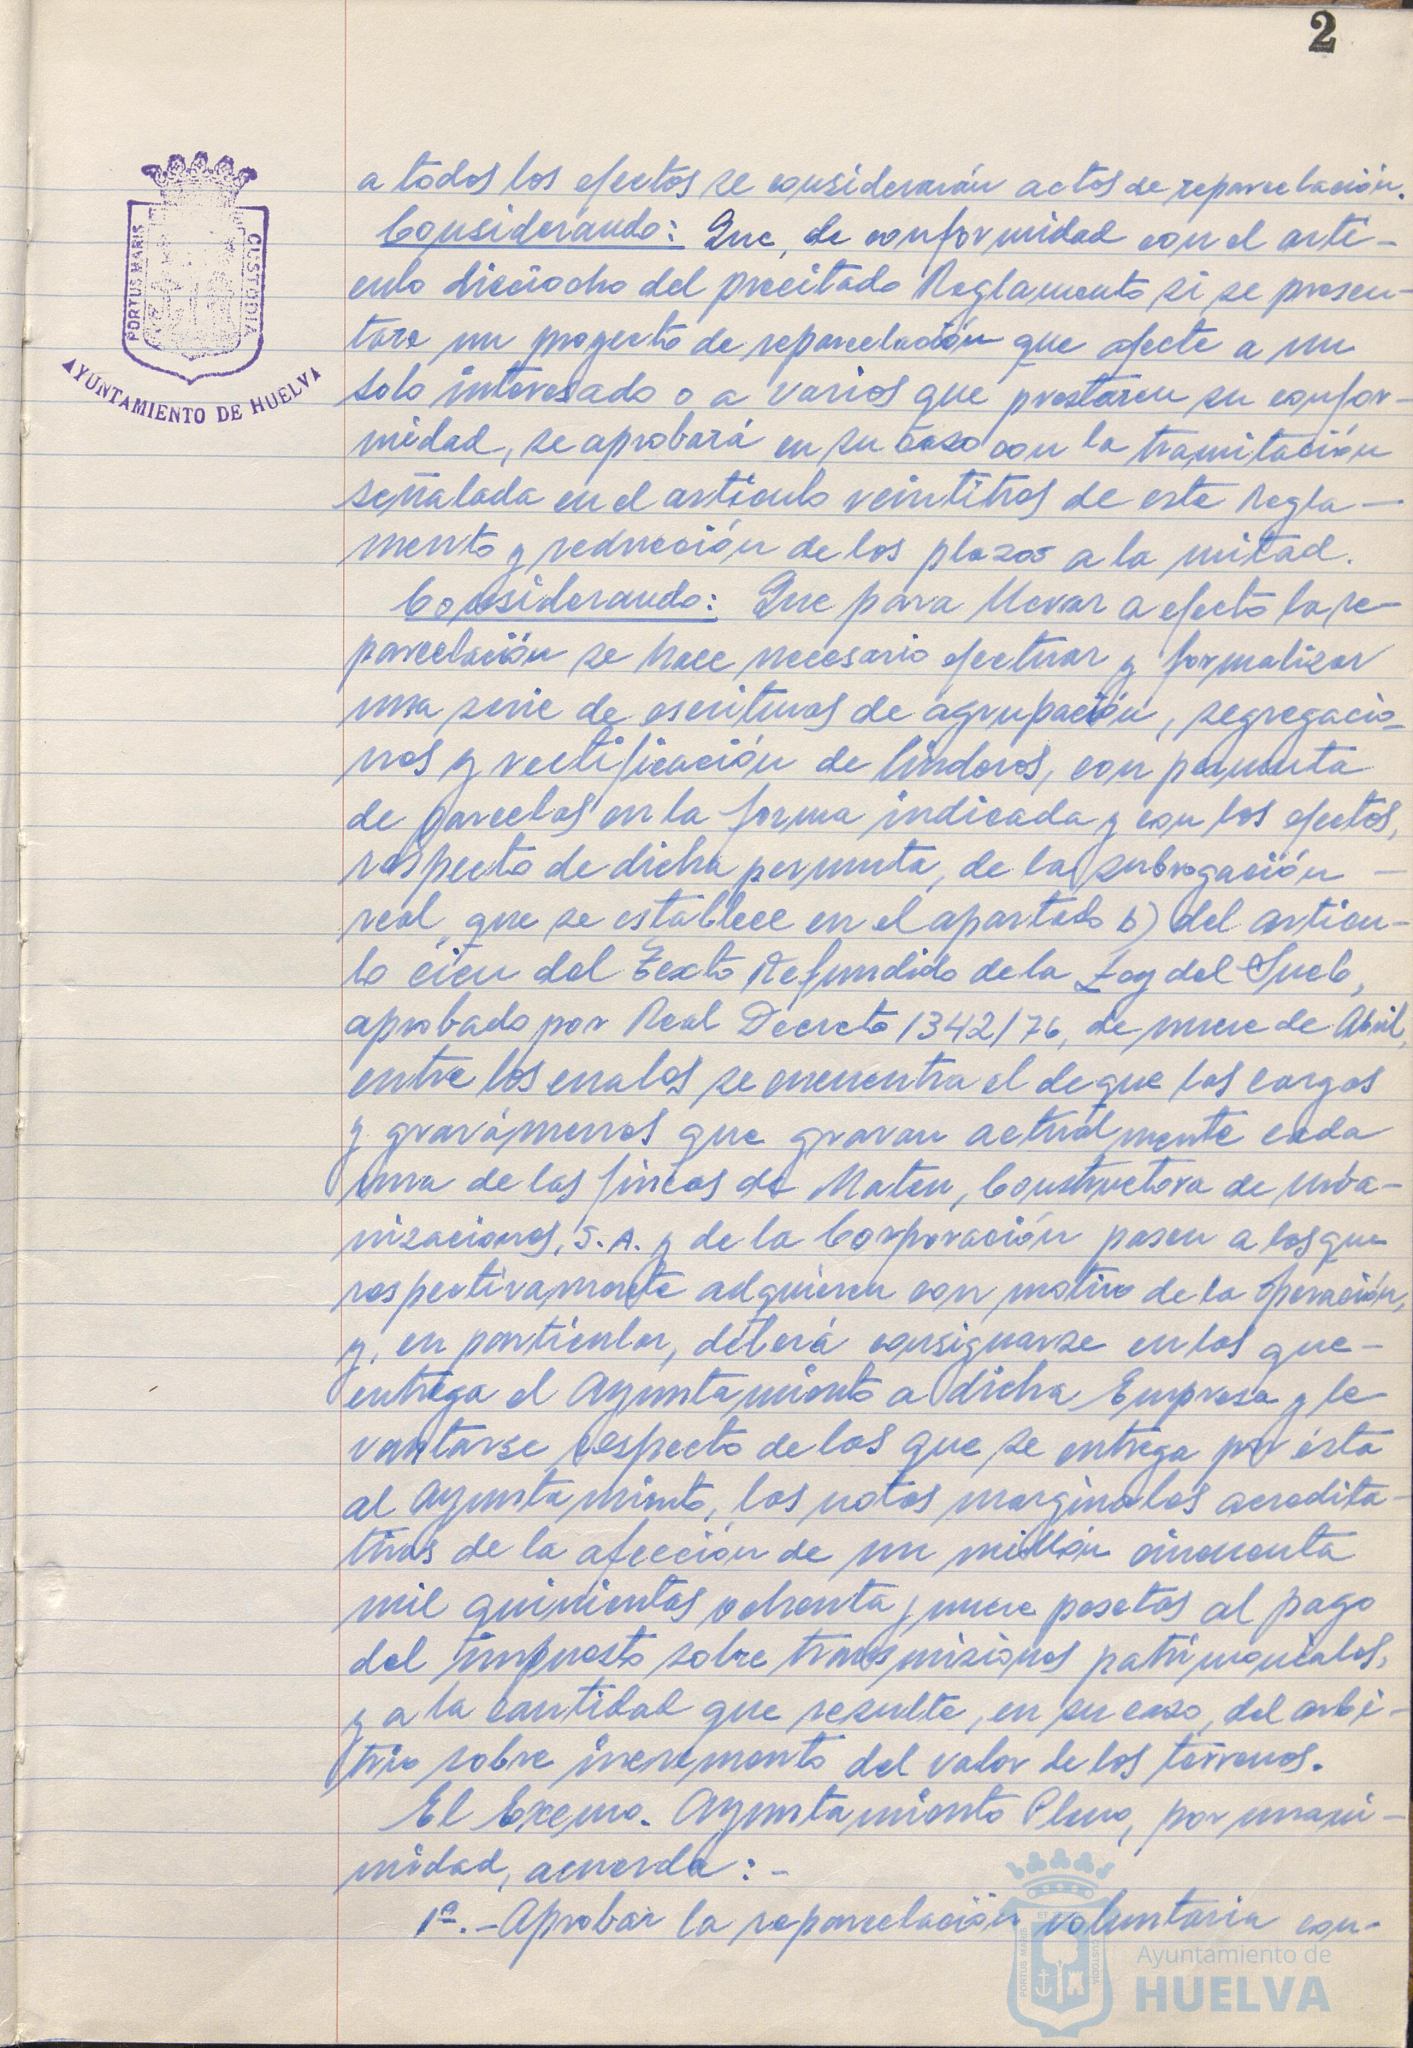 2
PORTUS MARIS
CUSTODIA
AYUNTAMIENTO DE HUELVA
a todos los efectos se considerarán actos de reparcelación.
Considerando: Que, de conformidad con el artí-
culo dieciocho del precitado Reglamento si se presen-
tare un proyecto de reparcelación que afecte a un
solo interesado o a varios que prestaren su confor-
midad, se aprobará en su caso con la tramitación
señalada en el artículo veintitres de este Regla-
mento y reducción de los plazos a la mitad.
Considerando: Que para llevar a efecto la re-
parcelación se hace necesario efectuar y formalizar
una serie de escrituras de agrupación, segregacio-
nes y rectificación de linderos, con permuta
de parcelas en la forma indicada y con los efectos,
respecto de dicha permuta, de la subrogación -
real, que se establece en el apartado b) del artícu-
lo cien del Texto Refundido de la Ley del Suelo,
aprobado por Real Decreto 1342/76, de nueve de Abril,
entre los cuales se encuentra el de que las cargas
y gravámenes que gravan actualmente cada
una de las fincas de Maten, Constructora de Urba-
nizaciones, S.A. y de la Corporación pasen a las que
respectivamente adquieren con motivo de la operación,
y, en particular, deberá consignarse en las que -
entrega el Ayuntamiento a dicha Empresa y le-
vantarse respecto de las que se entrega por ésta
al Ayuntamiento, las notas marginales acredita-
tivas de la afección de un millón cincuenta
mil quinientas ochenta y nueve pesetas al pago
del impuesto sobre transmisiones patrimoniales,
y a la cantidad que resulte, en su caso, del arbi-
trio sobre incremento del valor de los terrenos.
El Excmo. Ayuntamiento Pleno, por unani-
midad, acuerda: -
1º.- Aprobar la reparcelación voluntaria con-
PORTUS MARIS
CUSTODIA
Ayuntamiento de
HUELVA